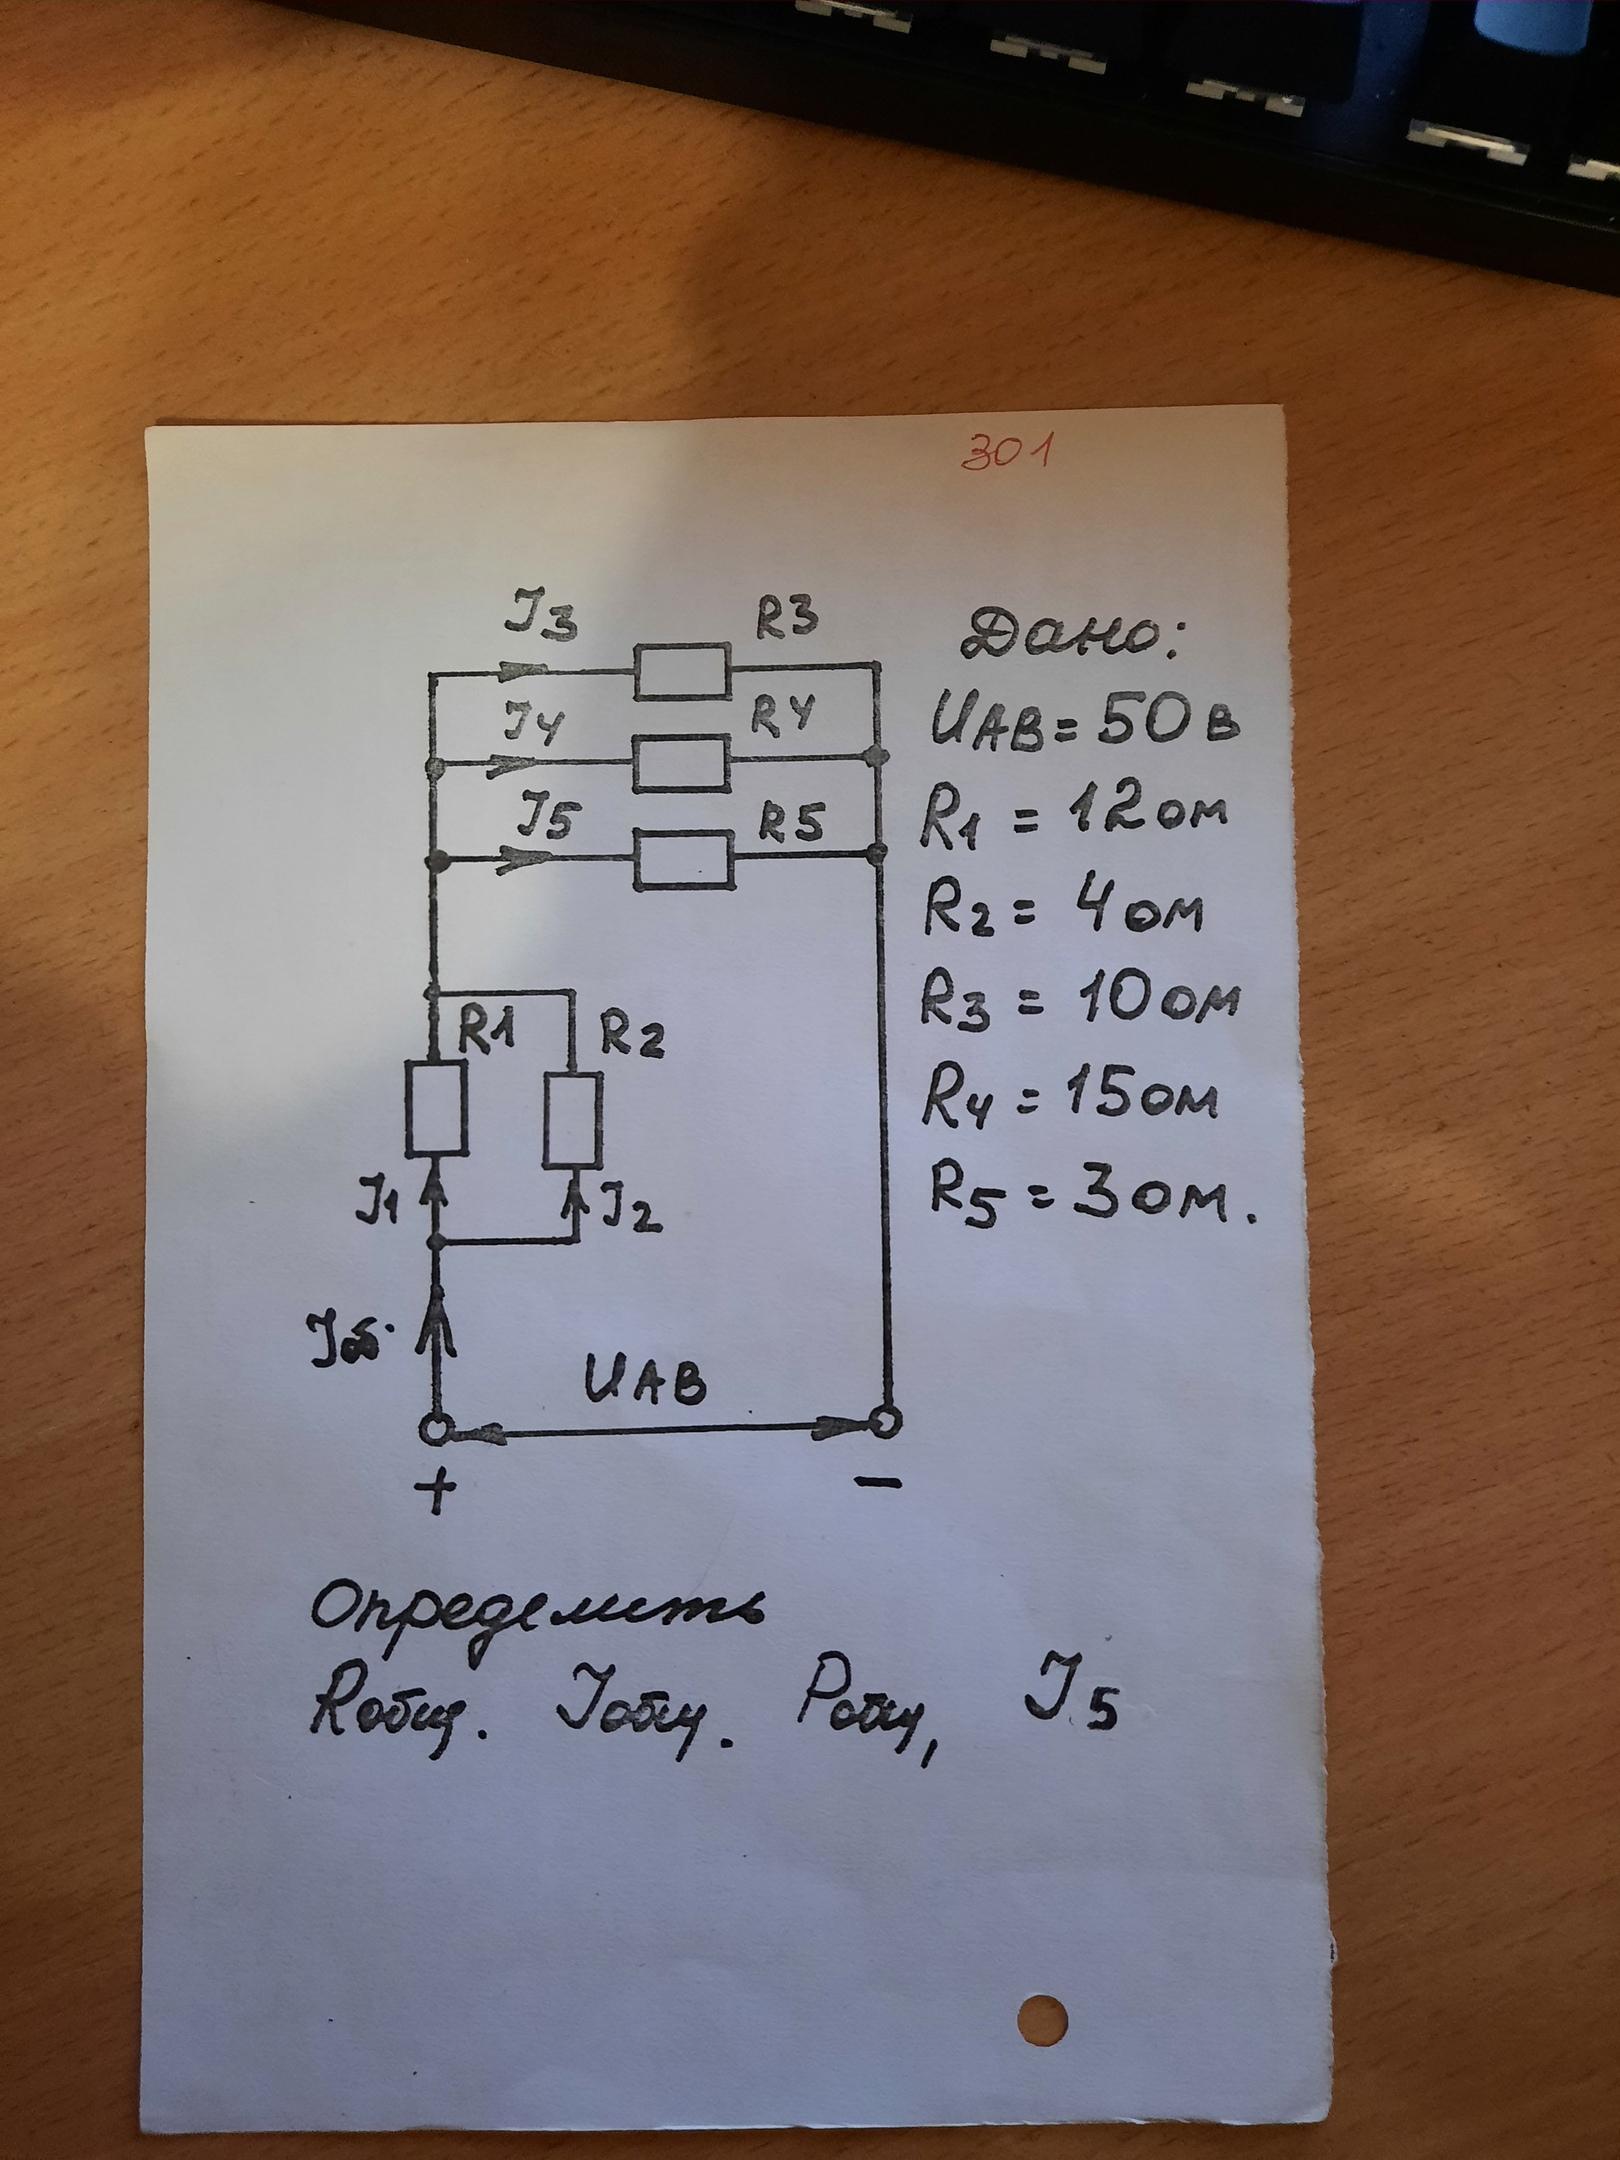 301
J3 R3
J4 R4
J5 R5
R1 R2
J1 J2
Jоб.
UAB
+ −
Дано:
UAB = 50 в
R1 = 12 ом
R2 = 4 ом
R3 = 10 ом
R4 = 15 ом
R5 = 3 ом.
Определить
Rобщ. Jобщ. Pобщ, J5